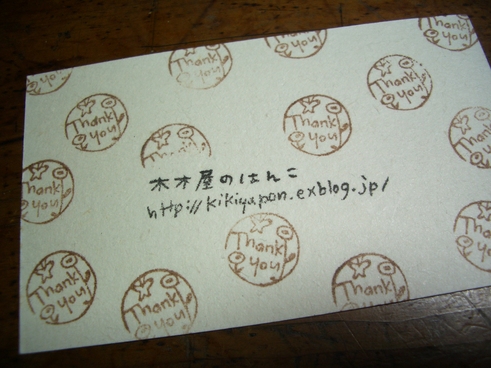 Thank you
Thank you
Thank you
Thank you
Thank you
Thank
木木屋のはんこ
http://kikiyapon.exblog.jp/
Thank you
Thank you
Thank you
Thank you
Thank you
Thank you